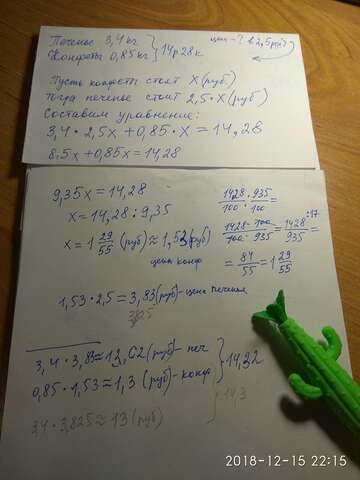 Печенье 3,4 кг } 14р 28к цена-? в 2,5 р>
Конфеты 0,85 кг
Пусть конфеты стоят x (руб)
тгда печенье стоит 2,5·x (руб)
Составим уравнение:
3,4·2,5x + 0,85·x = 14,28
8.5x + 0,85x = 14,28
9,35x = 14,28
x = 14,28 : 9,35
x = 1 29/55 (руб) ≈ 1,53 (руб)
цена конф
1428/100 : 935/100 =
1428·100/100·935 = 1428/935 :17 =
= 84/55 = 1 29/55
1,53·2,5 = 3,83 (руб) - цена печения
3,825
3,4·3,83 ≈ 13,02 (руб) - печ } 14,32
0,85·1,53 ≈ 1,3 (руб) - конф
3,4·3,825 ≈ 13 (руб) } 14,3
2018-12-15 22:15